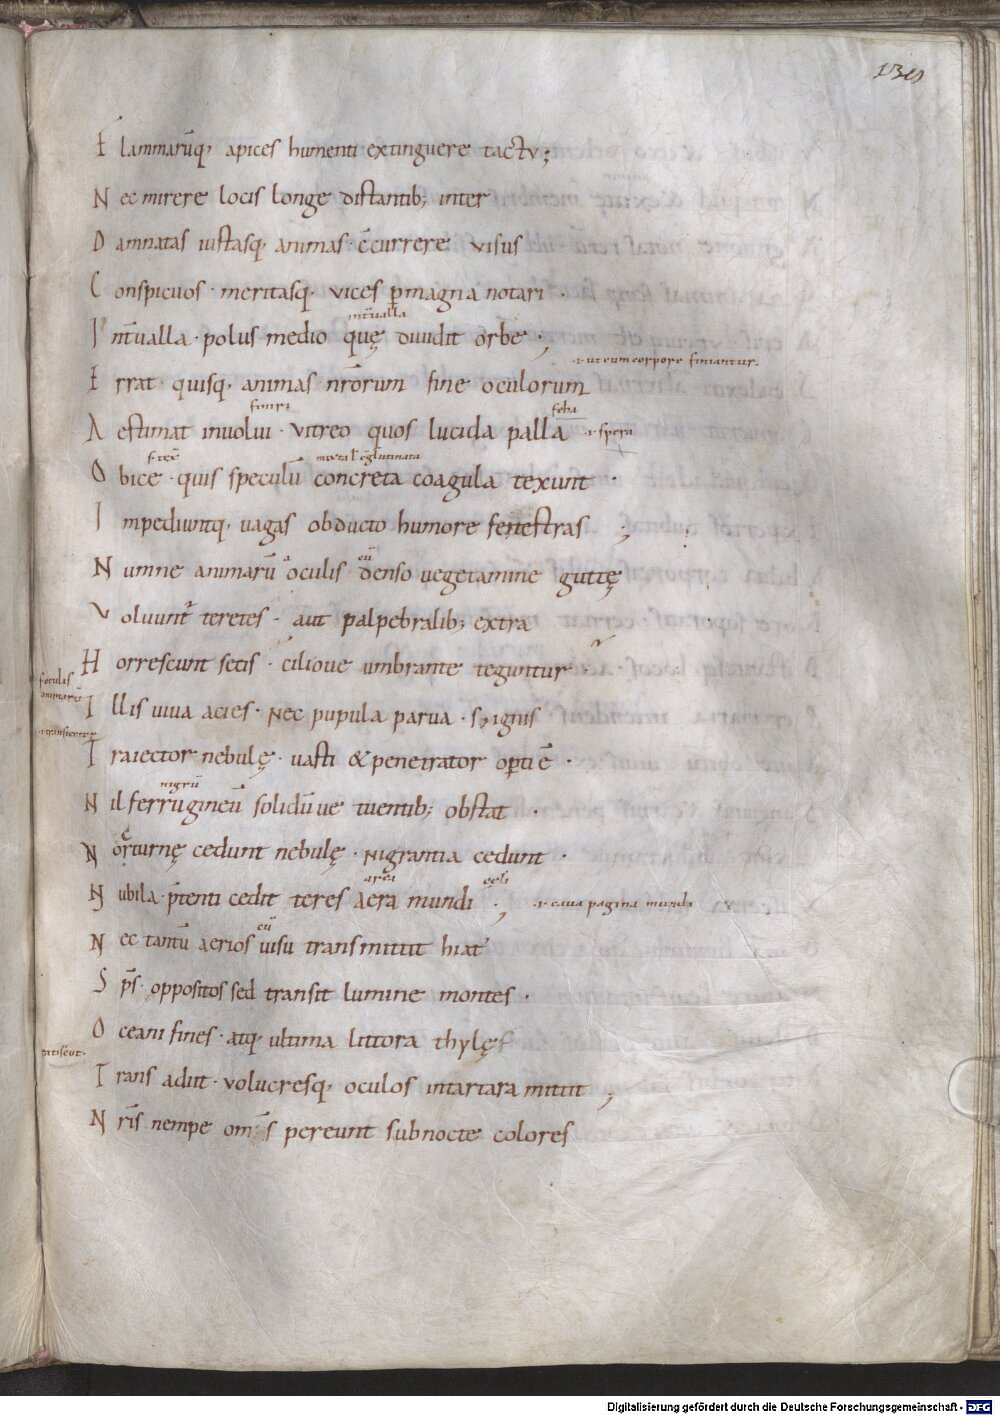 139
Flammarūq; apices humenti extinguere tactu;
Nec mirere locis longe distantib; inter
Damnatas iustasq; animas c̄currere visus
Conspicuos · meritasq; vices p̱ magna notari ·
int̄ualla
Int̄ualla · polus medio quę diuidit orbe ;
.i. ut cum corpore finiantur.
Errat · quisq; animas nr̄orum fine oculorum
Aestimat inuolui · vitreo quos lucida palla .i. spera
Obice · quis speculū concreta coagula texunt ·
Impediuntq; uagas obducto humore fenestras ;
Numne animarū oculis denso uegetamine guttę
Voluunt᷑ teretes · aut palpebralib; extra
Horrescunt setis · cilioue umbrante teguntur
animarū
Illis uiua acies · Nec pupula parua · s; ignis
Traiector nebulę · uasti & penetrator opti ē ·
nigrū
Nil ferrugineū solidūue tuentib; obstat ·
Nocturnę cedunt nebulę · Nigrantia cedunt ·
Nubila · p̄tenti cedit teres aera mundi ; .i. caua pagina mundi
eū
Nec tantū aerios uisu transmittit hiat᷒
Sp̄s · oppositos sed transit lumine montes ·
Oceani fines · atq; ultima littora thylęs
Transadiit · volucresq; oculos intartara mittit ;
Nr̄is nempe om̄s pereunt subnocte colores
Digitalisierung gefördert durch die Deutsche Forschungsgemeinschaft - DFG